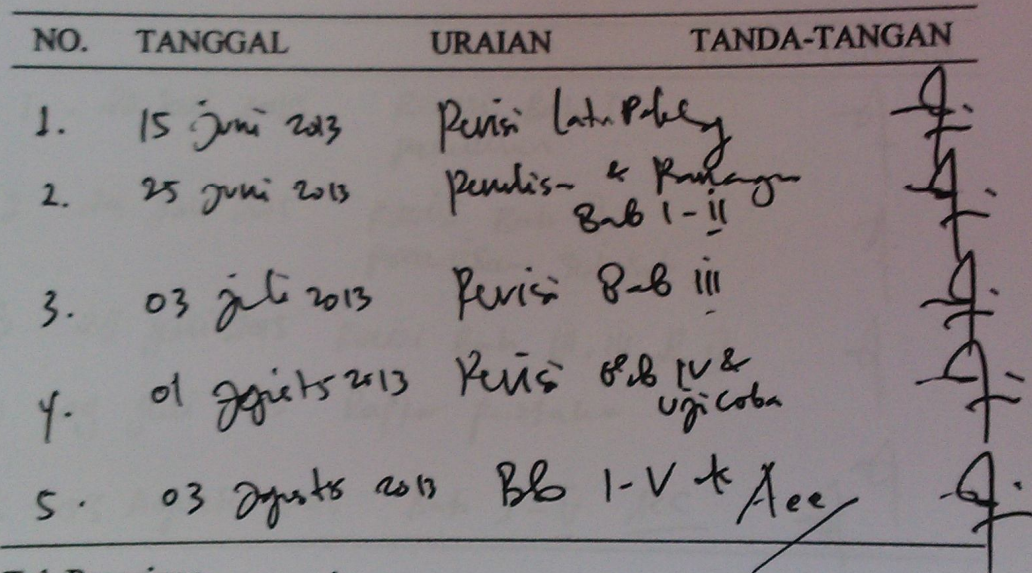 NO. TANGGAL URAIAN TANDA-TANGAN
1. 15 juni 2013 Revisi
2. 25 juni 2013 Penulisan &
Bab I - II
3. 03 juli 2013 Revisi Bab III
4. 01 Agustus 2013 Revisi Bab IV &
Ujicoba
5. 03 Agustus 2013 Bab I - V Acc